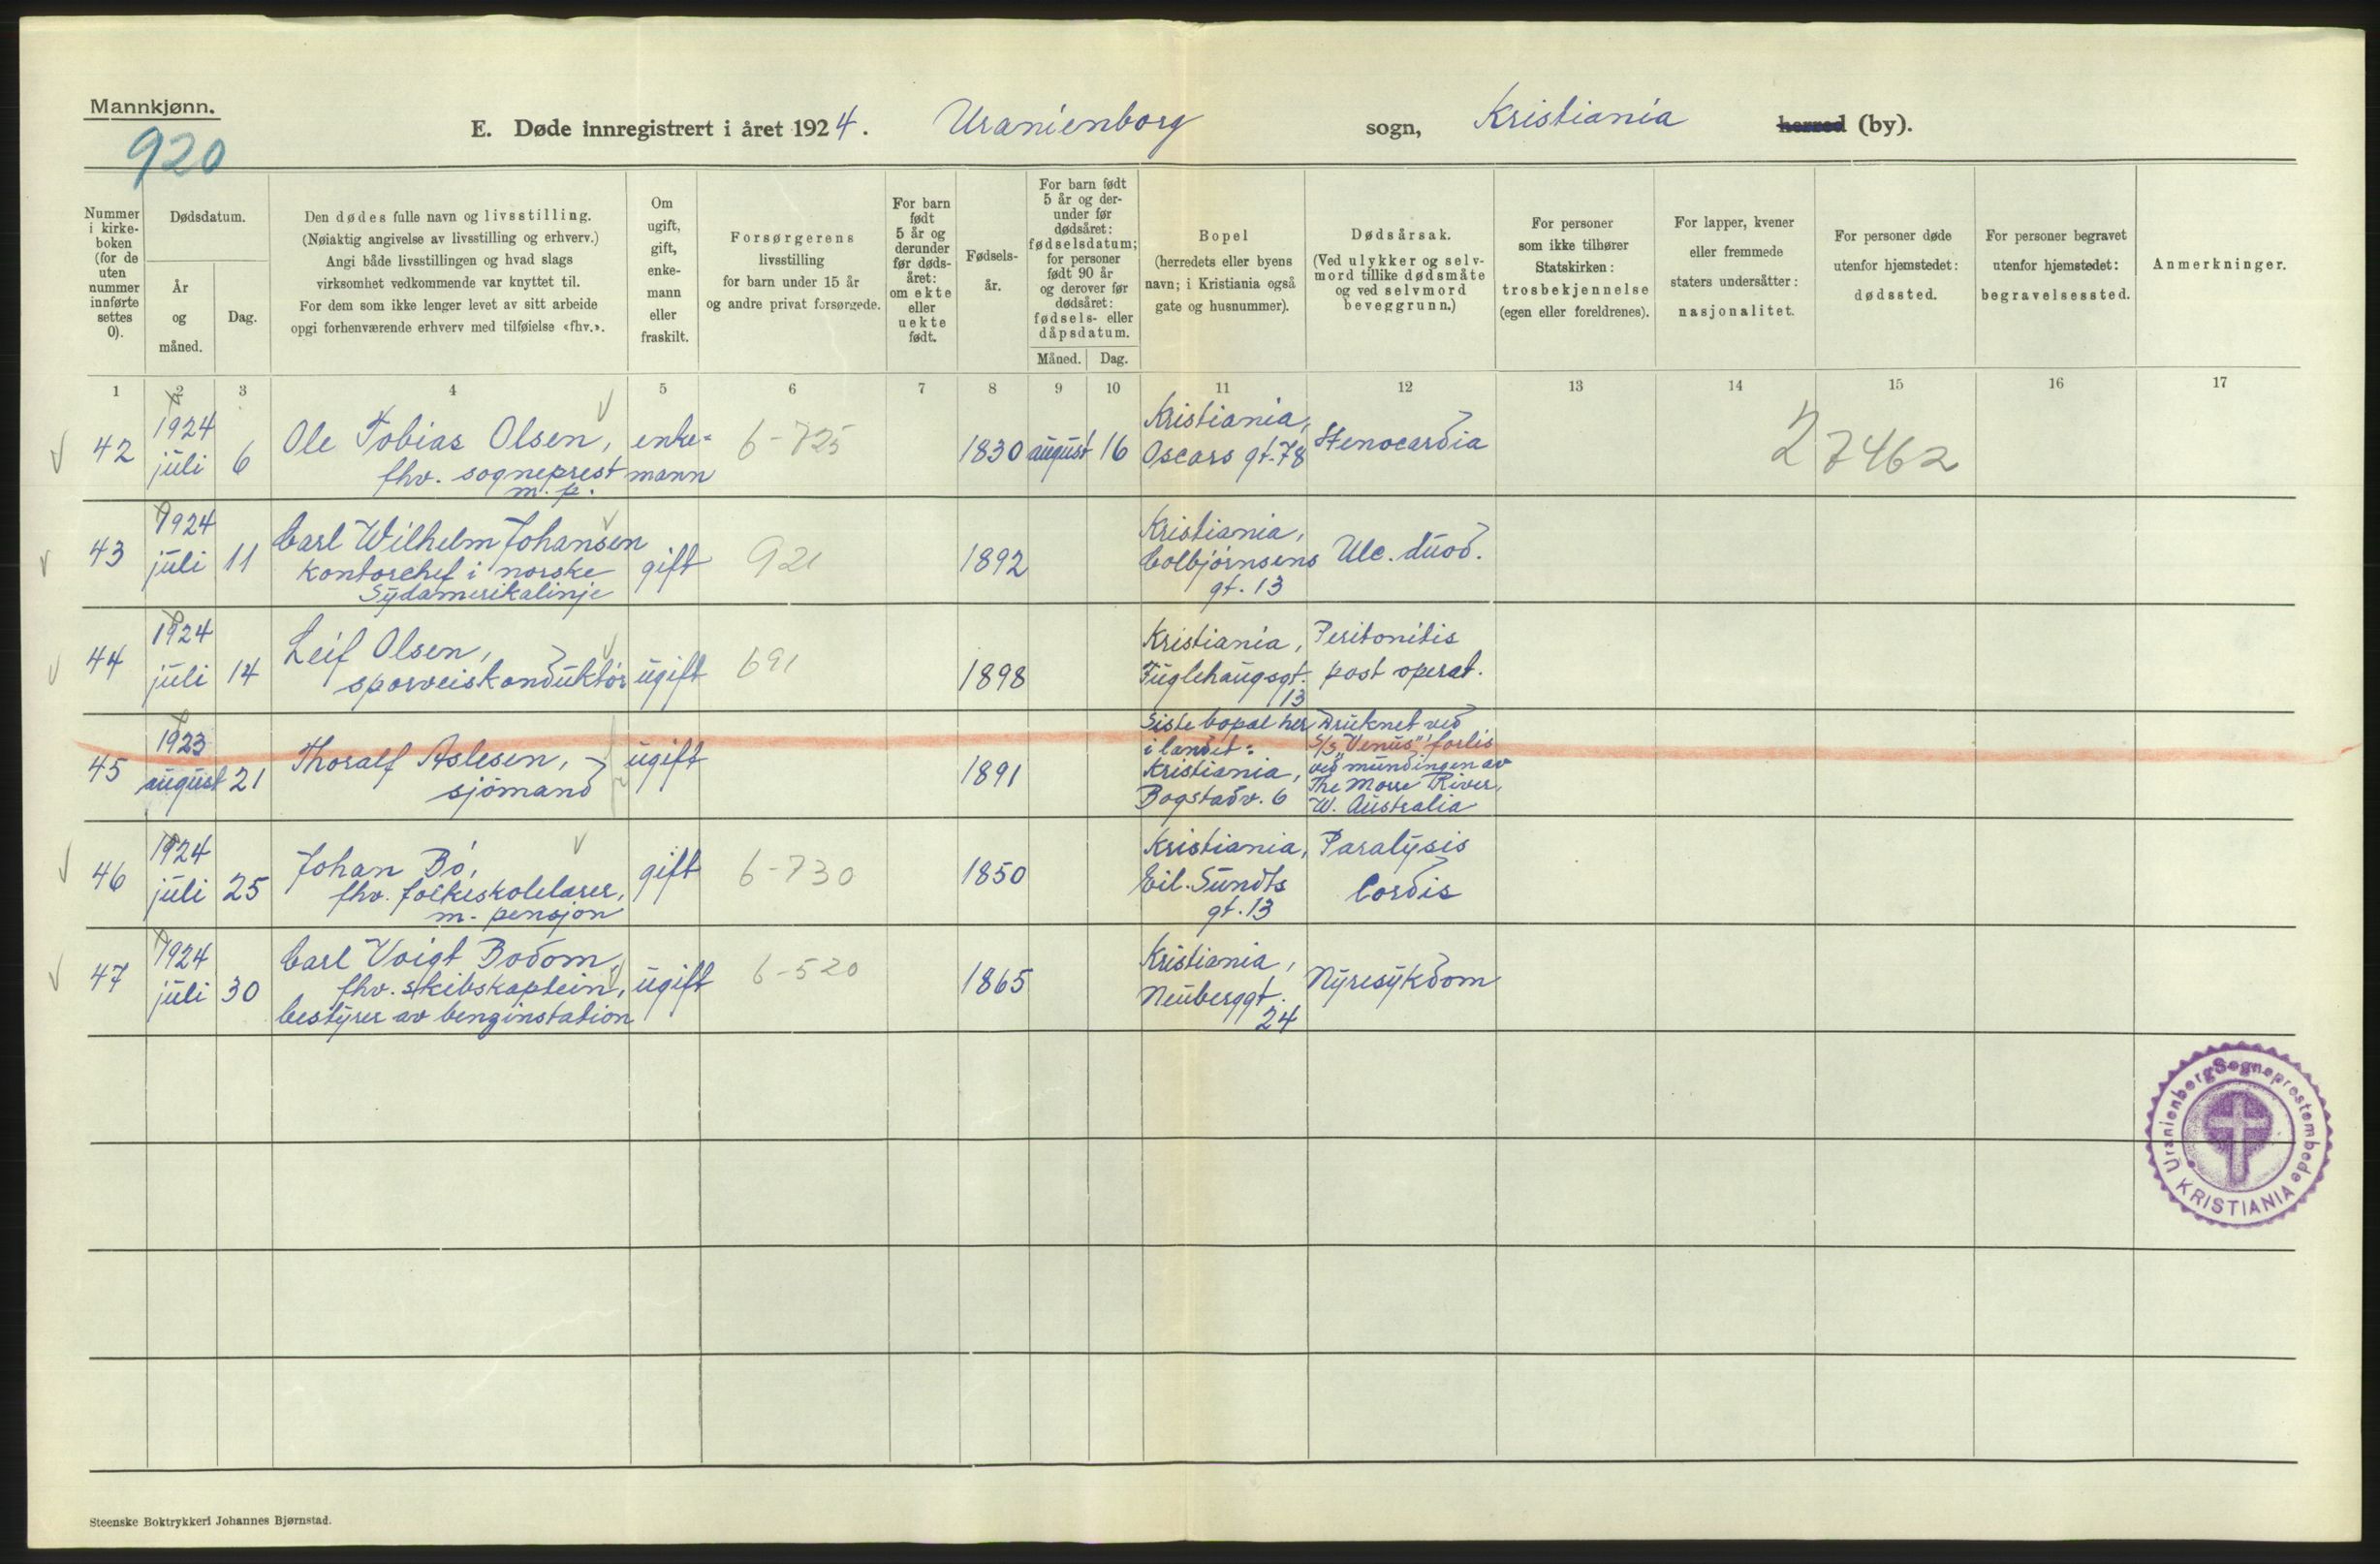 Mannkjønn.
920
E. Døde innregistrert i året 1924. Uranienborg sogn, Kristiania herred (by).
Nummer i kirke-boken (for de uten nummer innførte settes 0).
Dødsdatum.
År og måned.
Dag.
Den dødes fulle navn og livsstilling.
(Nøiaktig angivelse av livsstilling og erhverv.)
Angi både livsstillingen og hvad slags
virksomhet vedkommende var knyttet til.
For dem som ikke lenger levet av sitt arbeide
opgi forhenværende erhverv med tilføielse «fhv.».
Om ugift, gift, enke-mann eller fraskilt.
Forsørgerens
livsstilling
for barn under 15 år
og andre privat forsørgede.
For barn født 5 år og derunder før døds-året: om ekte eller uekte født.
Fødsels-år.
For barn født 5 år og der-under før dødsåret: fødselsdatum; for personer født 90 år og derover før dødsåret: fødsels- eller dåpsdatum.
Måned.
Dag.
Bopel
(herredets eller byens
navn; i Kristiania også
gate og husnummer).
Dødsårsak.
(Ved ulykker og selv-
mord tillike dødsmåte
og ved selvmord
beveggrunn.)
For personer
som ikke tilhører
Statskirken:
trosbekjennelse
(egen eller foreldrenes).
For lapper, kvener
eller fremmede
staters undersåtter:
nasjonalitet.
For personer døde
utenfor hjemstedet:
dødssted.
For personer begravet
utenfor hjemstedet:
begravelsessted.
Anmerkninger.
1 2 3 4 5 6 7 8 9 10 11 12 13 14 15 16 17
42 1924 juli 6 Ole Tobias Olsen, fhv. sogneprest m. p. enke-mann 6-725 1830 august 16 Kristiania, Oscars gt. 78 Stenocardia 27462
43 1924 juli 11 Carl Wilhelm Johansen kontorchef i norske Sydamerikalinje gift 921 1892 Kristiania, Colbjørnsens gt. 13 Ulc. duod.
44 1924 juli 14 Leif Olsen, sporveiskonduktør ugift 691 1898 Kristiania, Fuglehaugsgt. 13 Peritonitis post operat.
45 1923 august 21 Thoralf Aslesen, sjømand ugift 1891 Siste bopæl her i landet: Kristiania, Bogstadv. 6 Druknet ved S/S "Venus" forlis ved mundingen av The River, W. Australia
46 1924 juli 25 Johan Bø, fhv. folkeskolelærer, m. pensjon gift 6-730 1850 Kristiania, Eil. Sundts gt. 13 Paralysis Cordis
47 1924 juli 30 Carl Voigt Bodom, fhv. skibskaptein, bestyrer av benzinstation ugift 6-520 1865 Kristiania, Neuberggt. 24 Nyresykdom
Uranienborg Sogneprestembede
KRISTIANIA
Steenske Boktrykkeri Johannes Bjørnstad.